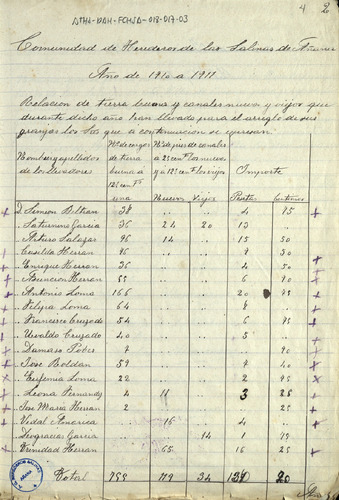 ATHA-DAH-FCHSA-018-017-03
4 2
Comunidad de Herederos de las Salinas de Añana
Año de 1910 a 1911
Relacion de tierra buena y canales nuevos y viejos que
durante dicho año han llevado para el arreglo de sus
granjas los Sres que a continuacion se espresan
Nombres y apellidos de los llevadores | de tierra buena a 12 centms una | de pies de canales a 25 centms los nuevos y a 12 centms los viejos | Importe
Nuevos Viejos Pesetas Centimos
D. Simeon Beltran 38 .. .. 4 75
.. Saturnino Garcia 36 24 20 13 ..
.. Arturo Salazar 96 14 .. 15 50
.. Casilda Herran 76 .. .. 9 50
.. Enrique Herran 36 .. .. 4 50
.. Asuncion Herran 55 .. .. 6 90
.. Antonio Loma 166 .. .. 20 75
.. Felipa Loma 64 .. .. 8 ..
.. Francisco Cruzado 54 .. .. 6 75
.. Osvaldo Cruzado 40 .. .. 5 ..
.. Damaso Pobes 7 .. .. .. 90
.. Jose Roldan 59 .. .. 7 40
.. Eufemia Loma 22 .. .. 2 75
.. Leona Fernandez 4 11 .. 3 25
.. Jose Maria Herran 2 .. .. .. 25
.. Vidal 16 .. 4 ..
.. Deogracias Garcia .. .. 14 1 75
.. Trinidad Herran .. 65 .. 16 25
Total 34 20